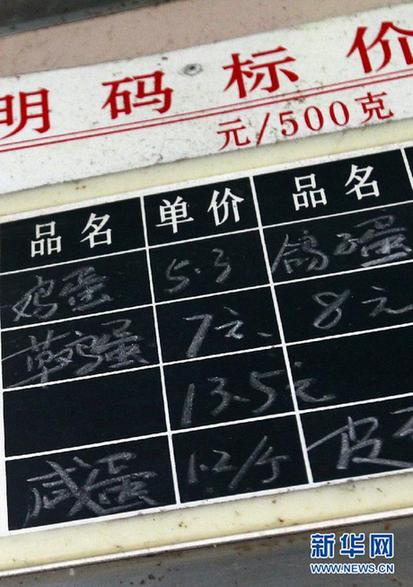 明码标价
元/500克
品名 单价 品名
鸡蛋 5.3 鸽子蛋
草鸡蛋 7元 8元
13.5元
咸蛋 1.2/个 皮
新华网
WWW.NEWS.CN